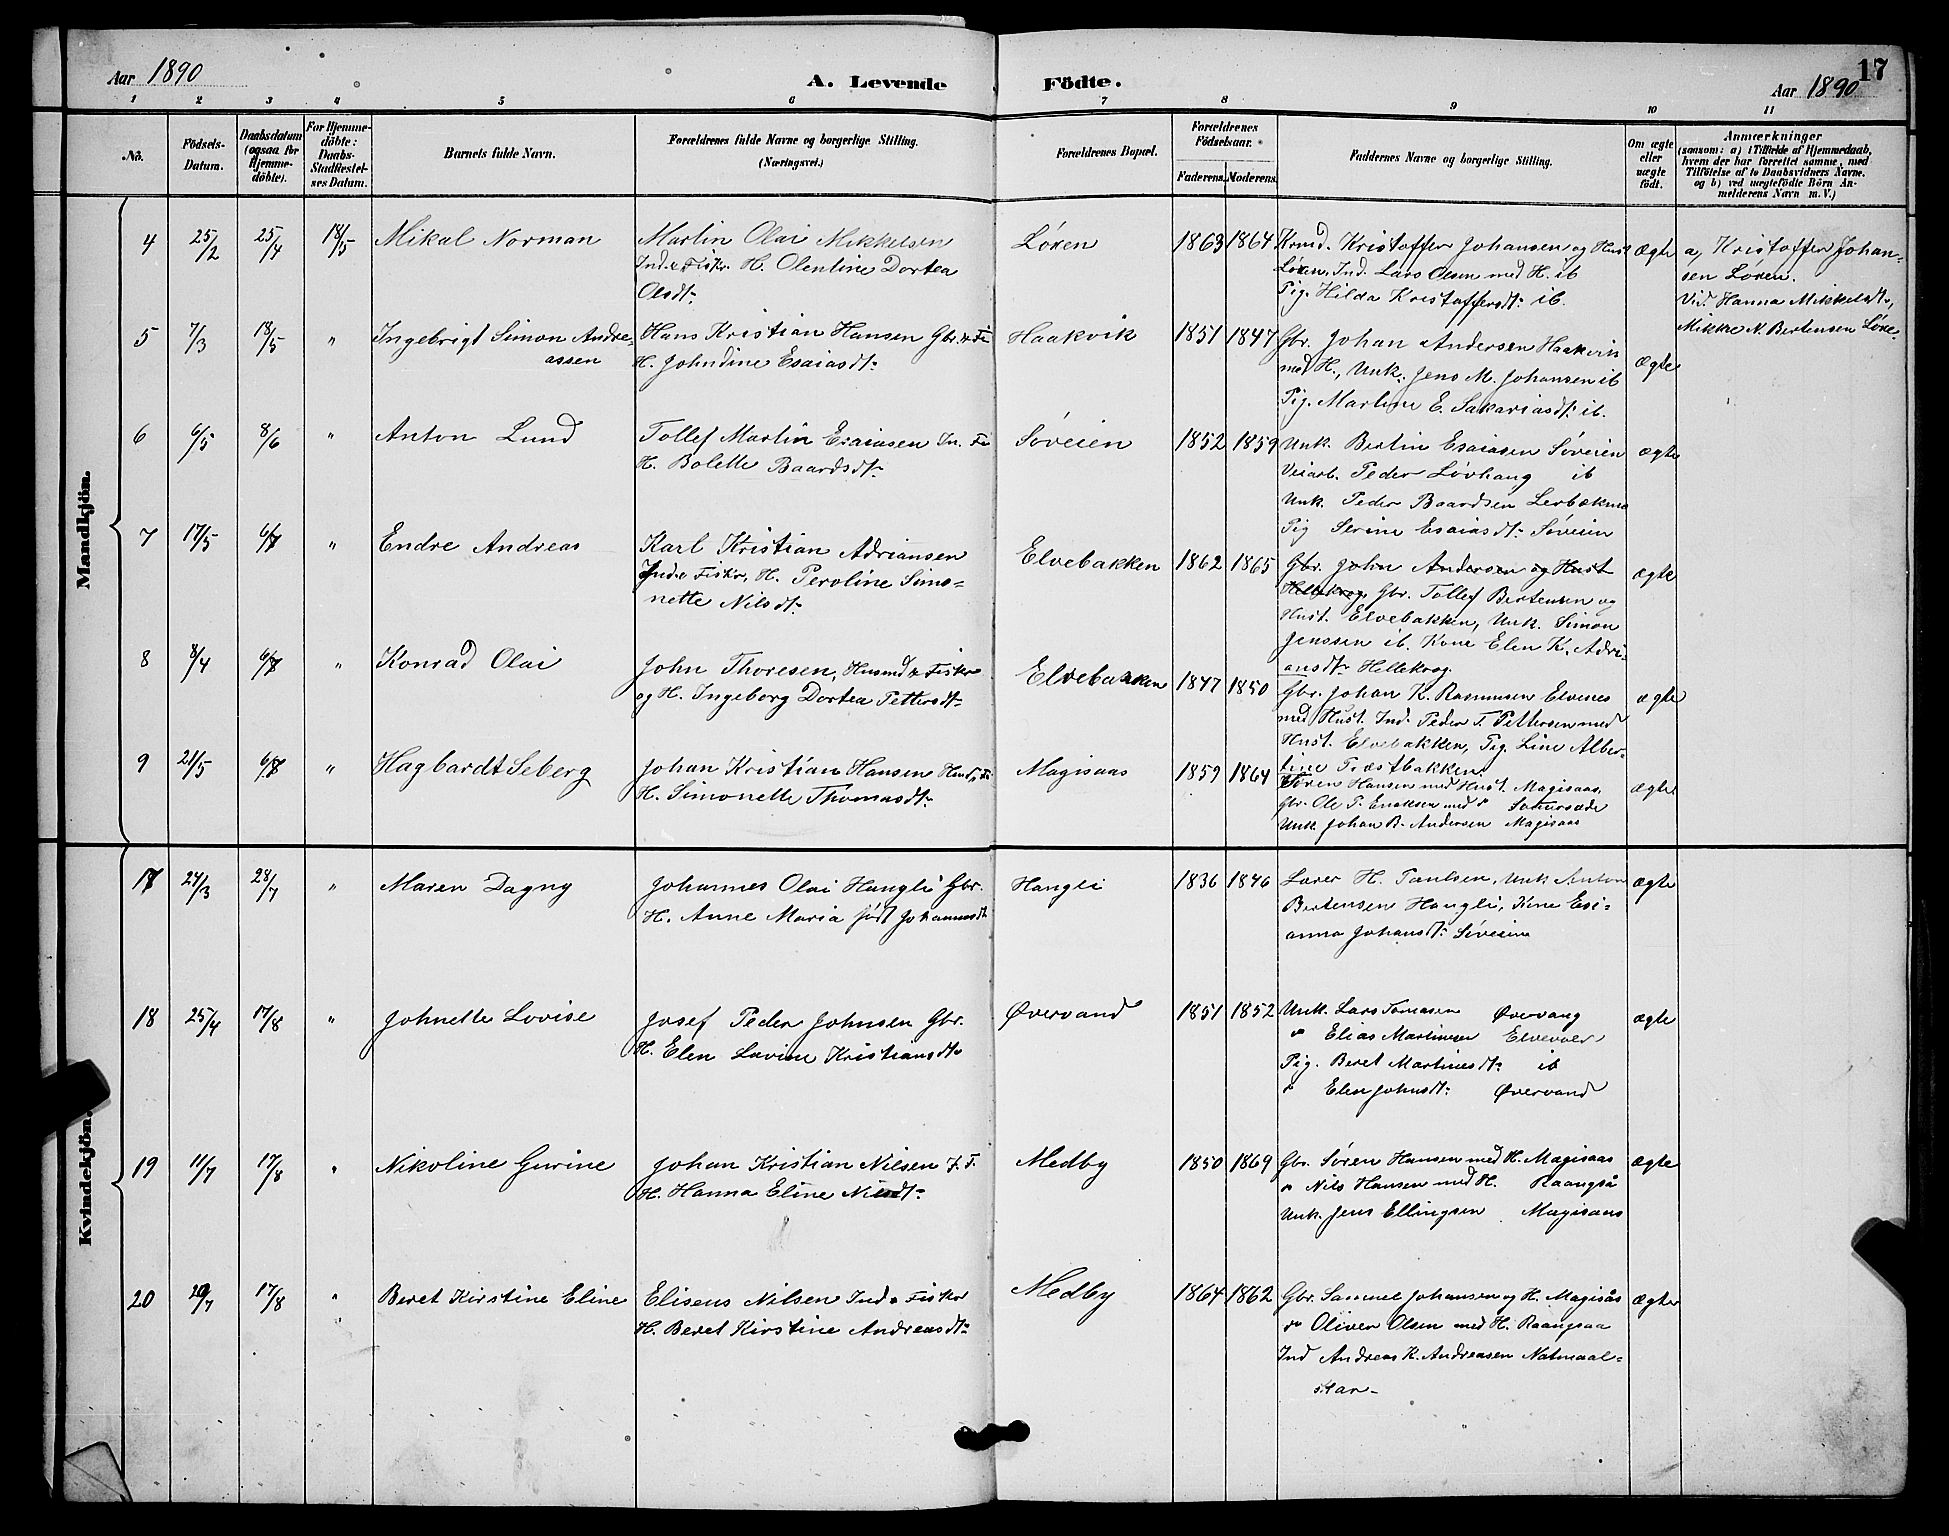 Aar 1890
A. Levende Födte.
17
Aar 1890
1 2 3 4 5 6 7 8 9 10 11
No.
Födsels-Datum.
Daabsdatum (ogsaa for Hjemme-döbte).
For Hjemme-döbte: Daabs-Stadfæstelses Datum.
Barnets fulde Navn.
Forældrenes fulde Navne og borgerlige Stilling. (Næringsvei.)
Forældrenes Bopæl.
Forældrenes Födselsaar.
Faderens. Moderens.
Faddernes Navne og borgerlige Stilling.
Om ægte eller uægte födt.
Anmærkninger
(saasom: a) i Tilfælde af Hjemmedaab, hvem der har forrettet samme, med Tilföielse af to Daabsvidners Navne. og b) ved uægtefödte Börn Anmelderens Navn m. V.)
Mandkjön.
4 25/2 25/4 18/5 Mikal Norman
Martin Olai Mikkelsen
Ind. & Fiskr. H. Olentine Dortea
Olsdt.
Løxen 1863 1864
Krmd. Kristoffer Johansen og Hust
Løxen, Ind. Lars Olsen med H. ib
Pig. Hilda Kristoffersdt. ib.
Ægte
a, Kristoffer Johan-
sen Løxen.
Vid. Hanna Mikkelsdt.,
Mikke N. Bertensen Løxe-
5 7/3 18/5 " Ingebrigt Simon Andre-
assen
Hans Kristian Hansen Gbr. & Fi
H. Johndine Esaiasdt.
Haakvik 1851 1847
Gbr. Johan Andersen Haakvik
med H., Unk. Jens M. Johansen ib
Pig. Martine E. Sakariasdt. ib.
Ægte
6 6/5 8/6 " Anton Lund
Tollef Martin Esaiasen In. Fi
H. Bolette Baardsdt.
Søveien 1852 1859
Unk. Bertin Esaiasen Søveien
Veiarb. Peder Løvhaug ib
Unk. Peder Baardsen Lerbækmo
Pig Serine Esaiasdt. Søveien
ægte
7 17/5 6/7 " Endre Andreas
Karl Kristian Adriansen
Ind. & Fiskr, H. Peroline Simo-
nette Nilsdt.
Elvebakken 1862 1865
Gbr. John Andersen og Hust
Hellekrog, Gbr. Tollef Bertensen og
Hust. Elvebakken, Unk. Simon
Jenssen ib. Kone Elen K. Adri-
ansdt. Hellekrog.
ægte
8 8/4 6/7 " Konrad Olai
John Thoresen, Husmd & Fiskr
og H. Ingeborg Dortea Pettersdt.
Elvebakken 1847 1850
Gbr. Johan K. Rasmussen Elvenes
med Hust. Ind. Peder T. Pettersen med
Hust. Elvebakken, Pig. Line Alber-
tine Præstbakken.
ægte
9 21/5 6/8 " Hagbardt Seberg
Johan Kristian Hansen Husd & Fi
H. Simonette Thomasdt.
Magisaas 1859 1864
Søren Hansen med Hust. Magisaas,
Gbr. Ole P. Enoksen med "
Unk. Johan B. Andersen Magisaas
ægte
Kvindekjön.
17 24/3 28/7 " Maren Dagny
Johannes Olai Hangli Gbr.
H. Anne Maria født Johannesdt
Hangli 1836 1846
Lærer H. Paulsen, Unk Anton
Bertensen Hangli, Kone Esi-
anna Johansdt. Søveien
ægte
18 25/4 17/8 " Johnette Lovise
Josef Peder Johnsen Gbr.
H. Elen Lavine Kristiansdt.
Øvervand 1851 1852
Unk. Lars Tomasen Øvervang
" Elias Martinsen Elvevoer
Pig. Beret Martinesdt. ib
" Elen Johnsdt. Øvervand
ægte
19 11/7 17/8 " Nikoline Gurine
Johan Kristian Nilsen I. F.
H. Hanna Eline Nilsdt.
Medby 1850 1869
Gbr. Søren Hansen med H. Magisaas
" Nils Hansen med H. Raangså
Unk. Jens Ellingsen Magisaas
Ægte
20 29/7 17/8 " Beret Kirstine Eline
Elisens Nilsen Ind & Fiskr
H. Beret Kirstine Andreasdt.
Medby 1864 1862
Gbr. Samuel Johansen og H. Magisås
" Oliver Olsen med H. Raangsaa
Ind Andreas K. Andreasen Natmaal-
star-
ægte